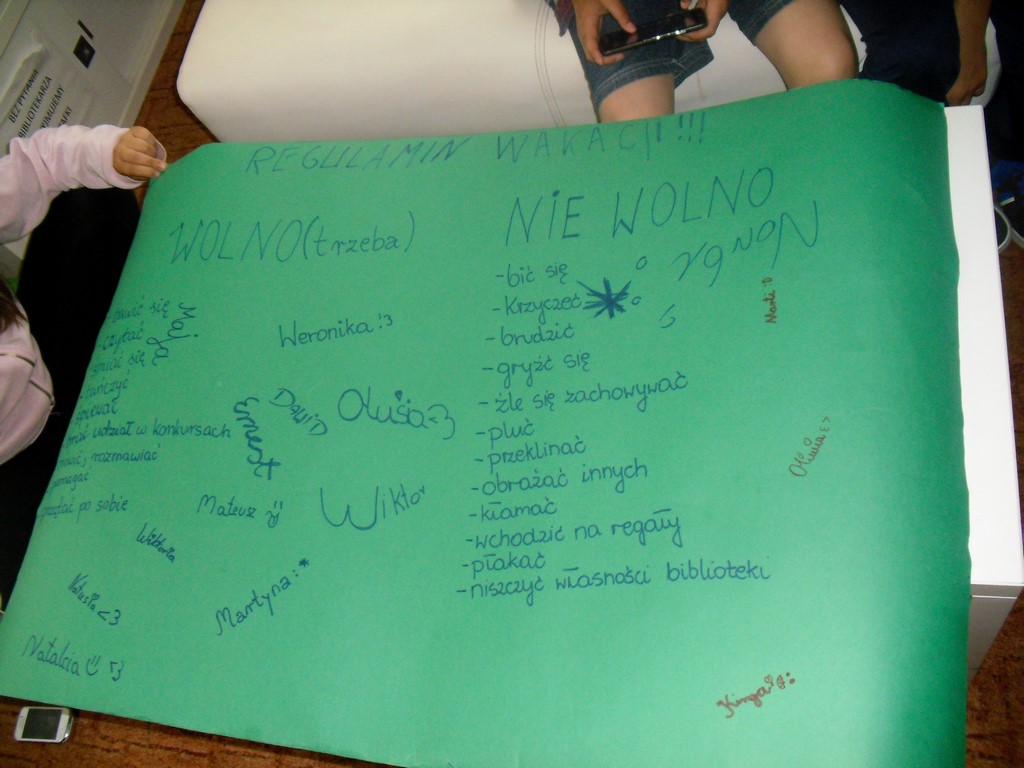 BEZ PYTANIA
BIBLIOTEKARZA
REGULAMIN WAKACJI!!!
WOLNO(trzeba)
- bawić się
- czytać
- śmiać się
- tańczyć
- śpiewać
- brać udział w konkursach
rozmawiać
- pomagać
po sobie
NIE WOLNO
- bić się
- krzyczeć
- brudzić
- gryźć się
- źle się zachowywać
- pluć
- przeklinać
- obrażać innych
- kłamać
- wchodzić na regały
- płakać
- niszczyć własności biblioteki
Maja
Weronika :3
DAWID
Ernest
Olusia <3
Mateusz
Wiktor
Wiktoria
Martyna :*
Natusia <3
Natalcia <3
Norbi
Oliwia
Kinga